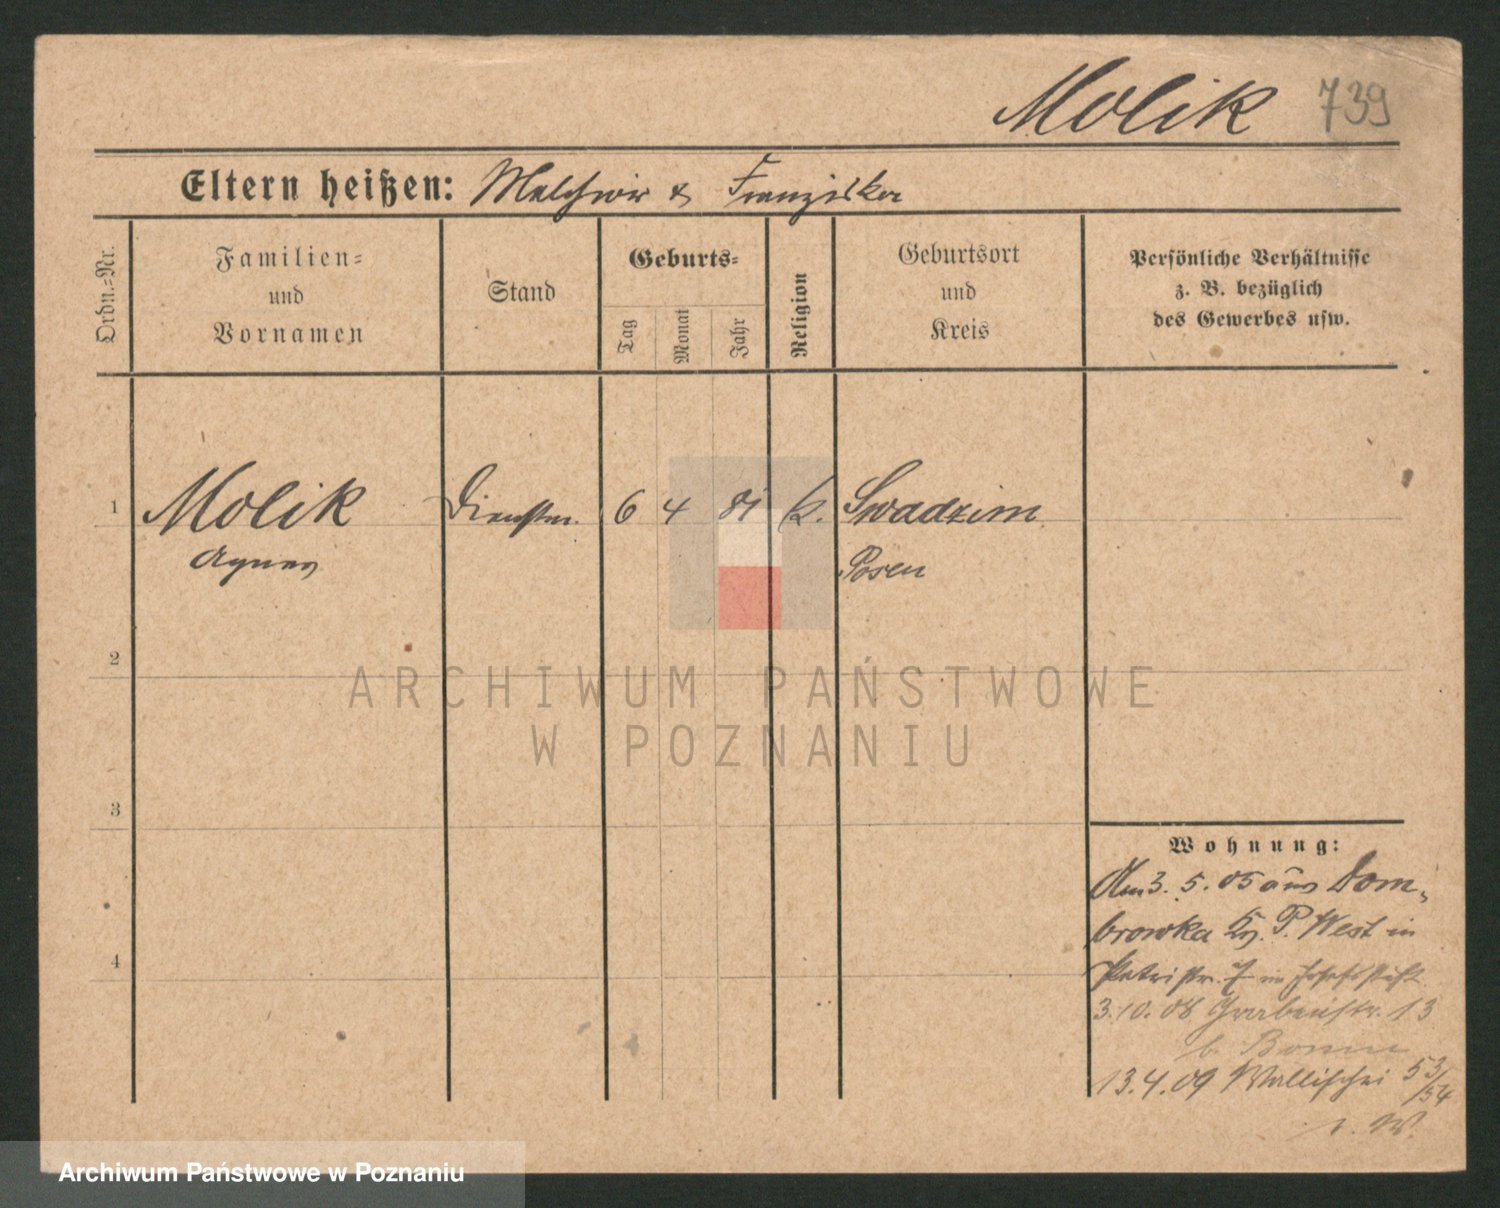 Molik 739
Eltern heißen: Melchior & Franziska
Ordn.-Nr.
Familien-
und
Vornamen
Stand
Geburts-
Tag
Monat
Jahr
Religion
Geburtsort
und
Kreis
Persönliche Verhältnisse
z. B. bezüglich
des Gewerbes usw.
1 Molik Dienstm. 6 4 81 k. Swadzim
Agnes Posen
2
ARCHIWUM PAŃSTWOWE
W POZNANIU
3
Wohnung:
Am 3. 5. 05 aus Dom-
browka Kr. P. West in
4
Petristr. 7 im Josefstift
3.10.08 Grabenstr. 13
b.
13.4.09 Wallischei 53/54
Archiwum Państwowe w Poznaniu